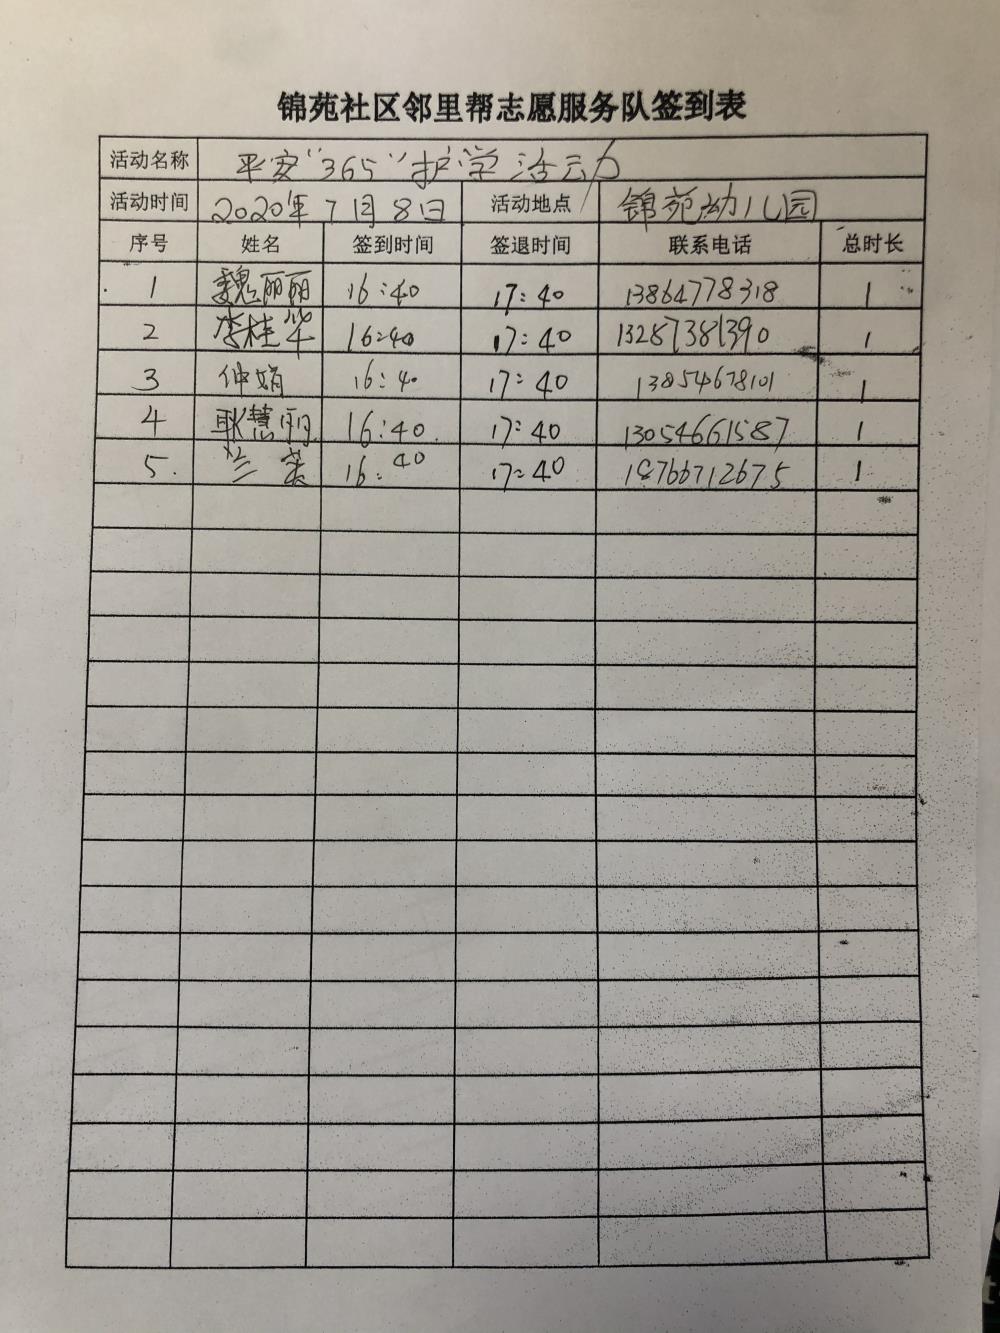 锦苑社区邻里帮志愿服务队签到表
活动名称 平安“365”护学活动
活动时间 2020年7月8日 活动地点 锦苑幼儿园
序号 姓名 签到时间 签退时间 联系电话 总时长
1 魏丽丽 16:40 17:40 13864778318 1
2 李桂华 16:40 17:40 13287381390 1
3 仲娟 16:40 17:40 13854678101 1
4 耿慧丽 16:40 17:40 13054661587 1
5. 兰英 16:40 17:40 18766712675 1